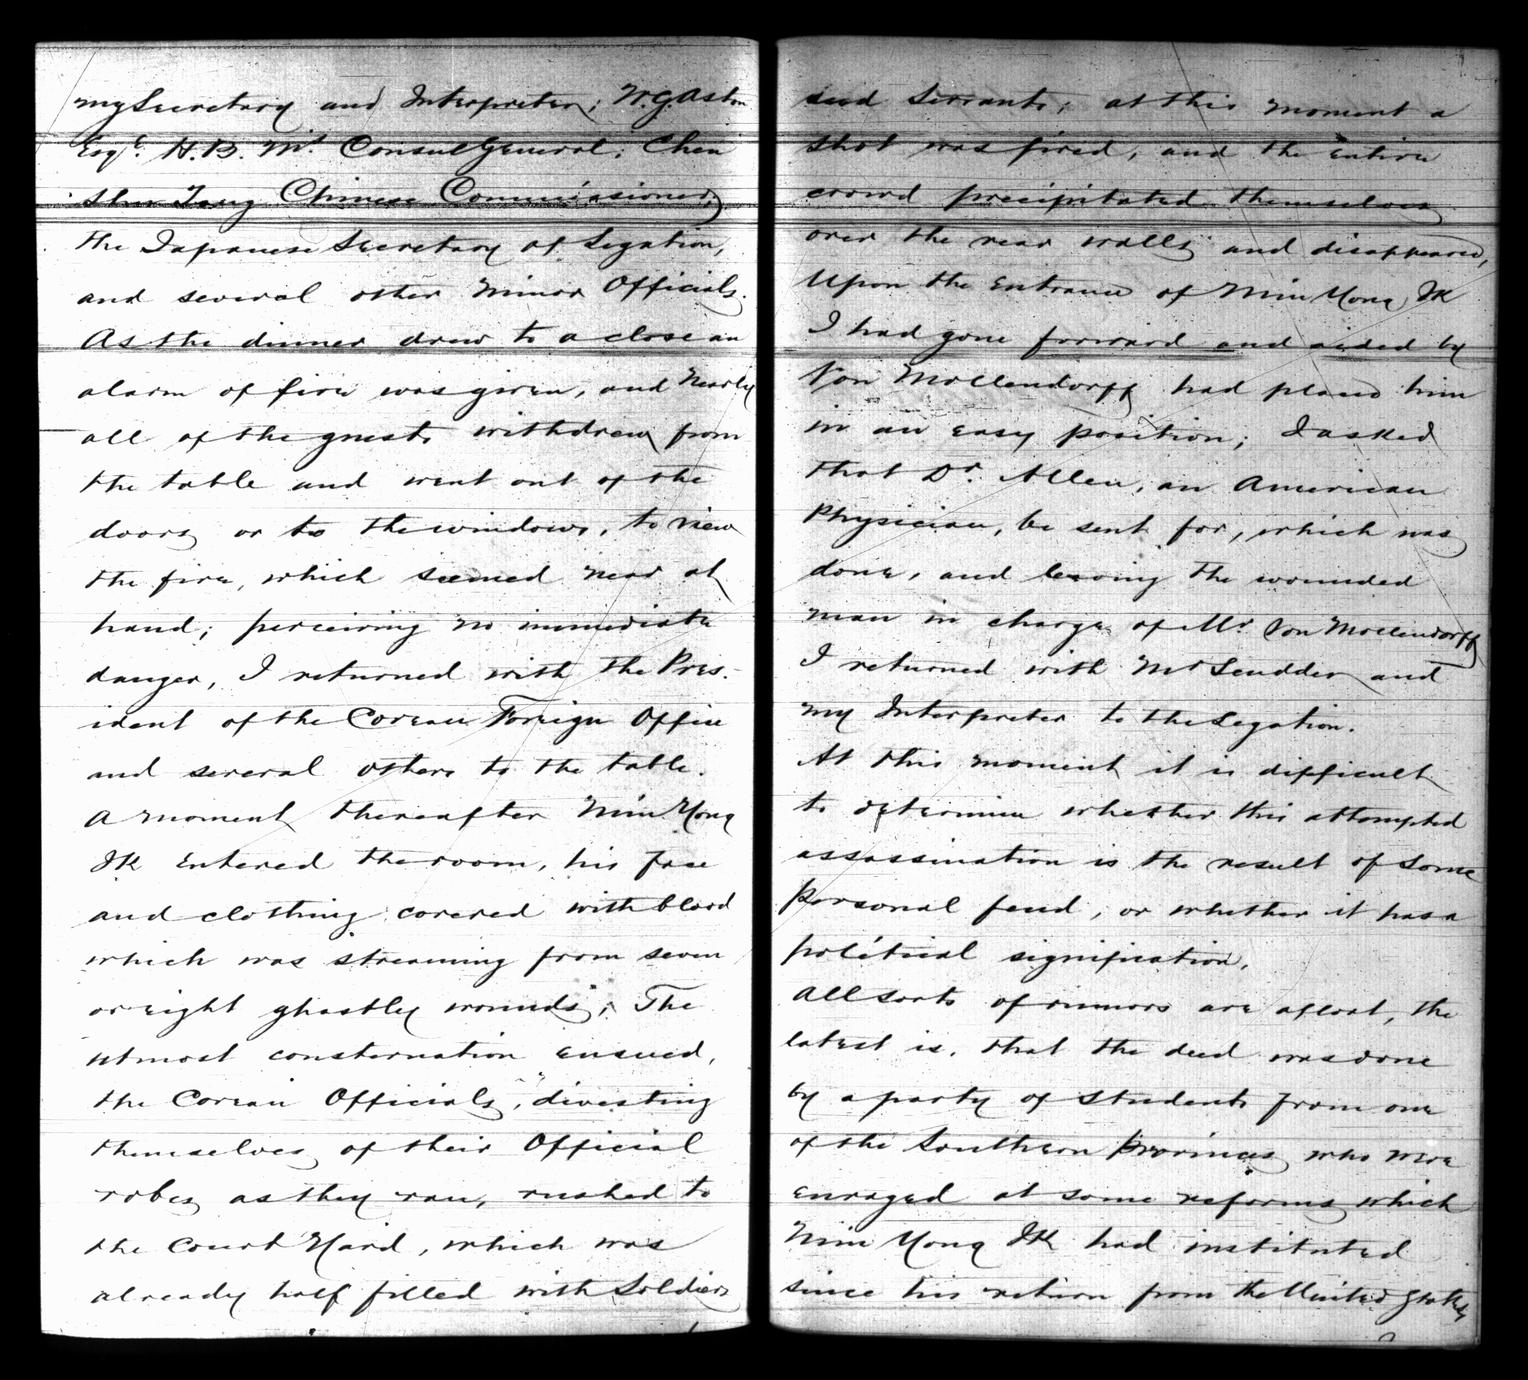 my Secretary and Interpreter; W.G. Aston
Esqr. H.B. M's Consul General; Chen
Shu Tang Chinese Commissioner,
the Japanese Secretary of Legation,
and several other minor Officials.
As the dinner drew to a close an
alarm of fire was given, and nearly
all of the guests withdrew from
the table and went out of the
doors or to the windows, to view
the fire, which seemed near at
hand; perceiving no immediate
danger, I returned with the Pres-
ident of the Corean Foreign Office
and several others to the table.
A moment thereafter Min Yong
Ik entered the room, his face
and clothing covered with blood
which was streaming from seven
or eight ghastly wounds; The
utmost consternation ensued,
the Corean Officials, divesting
themselves of their Official
robes as they ran, rushed to
the Court Yard, which was
already half filled with Soldiers
and Servants; at this moment a
shot was fired, and the entire
crowd precipitated themselves
over the rear walls and disappeared,
Upon the Entrance of Min Yong Ik
I had gone forward and aided by
Von Mollendorff had placed him
in an easy position; I asked
that Dr. Allen, an American
Physician, be sent for, which was
done, and leaving the wounded
man in charge of Mr. Von Mollendorff
I returned with Mr Scudder and
my Interpreter to the Legation.
At this moment it is difficult
to determine whether this attempted
assassination is the result of some
personal feud, or whether it has a
political signification.
All sorts of rumors are afloat, the
latest is, that the deed was done
by a party of Students from one
of the Southern Provinces who were
enraged at some reforms which
Min Yong Ik had instituted
since his return from the United States